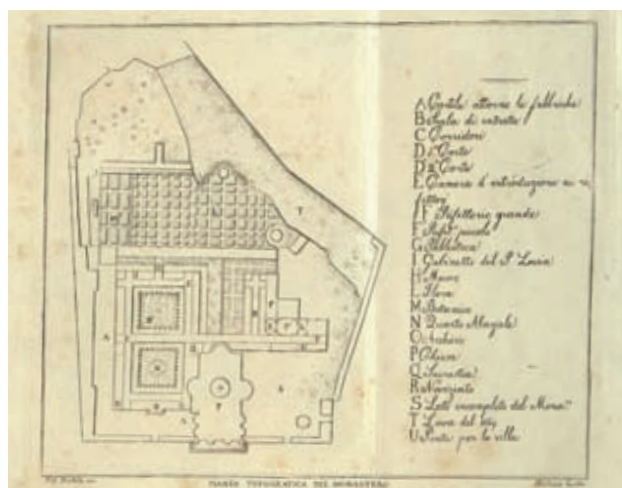 A Cortile attorno le fabbriche
B Scala di entrata
C Corridori
D 1ª Corte
D 2ª Corte
E Camera d'introduzione ai re
fettori
F Refettorio grande
F Refett. piccolo
G Biblioteca
I Gabinetto del P. Louvin
H Museo
L Flora
M Botanico
N Quarto Abaziale
O Archivi
P Chiesa
Q Sacrestia
R Noviziato
S Lato incompleto del Mona.ro
T Lava del 1669
U Ponte per la villa
PIANTA TOPOGRAFICA DEL MONASTERO